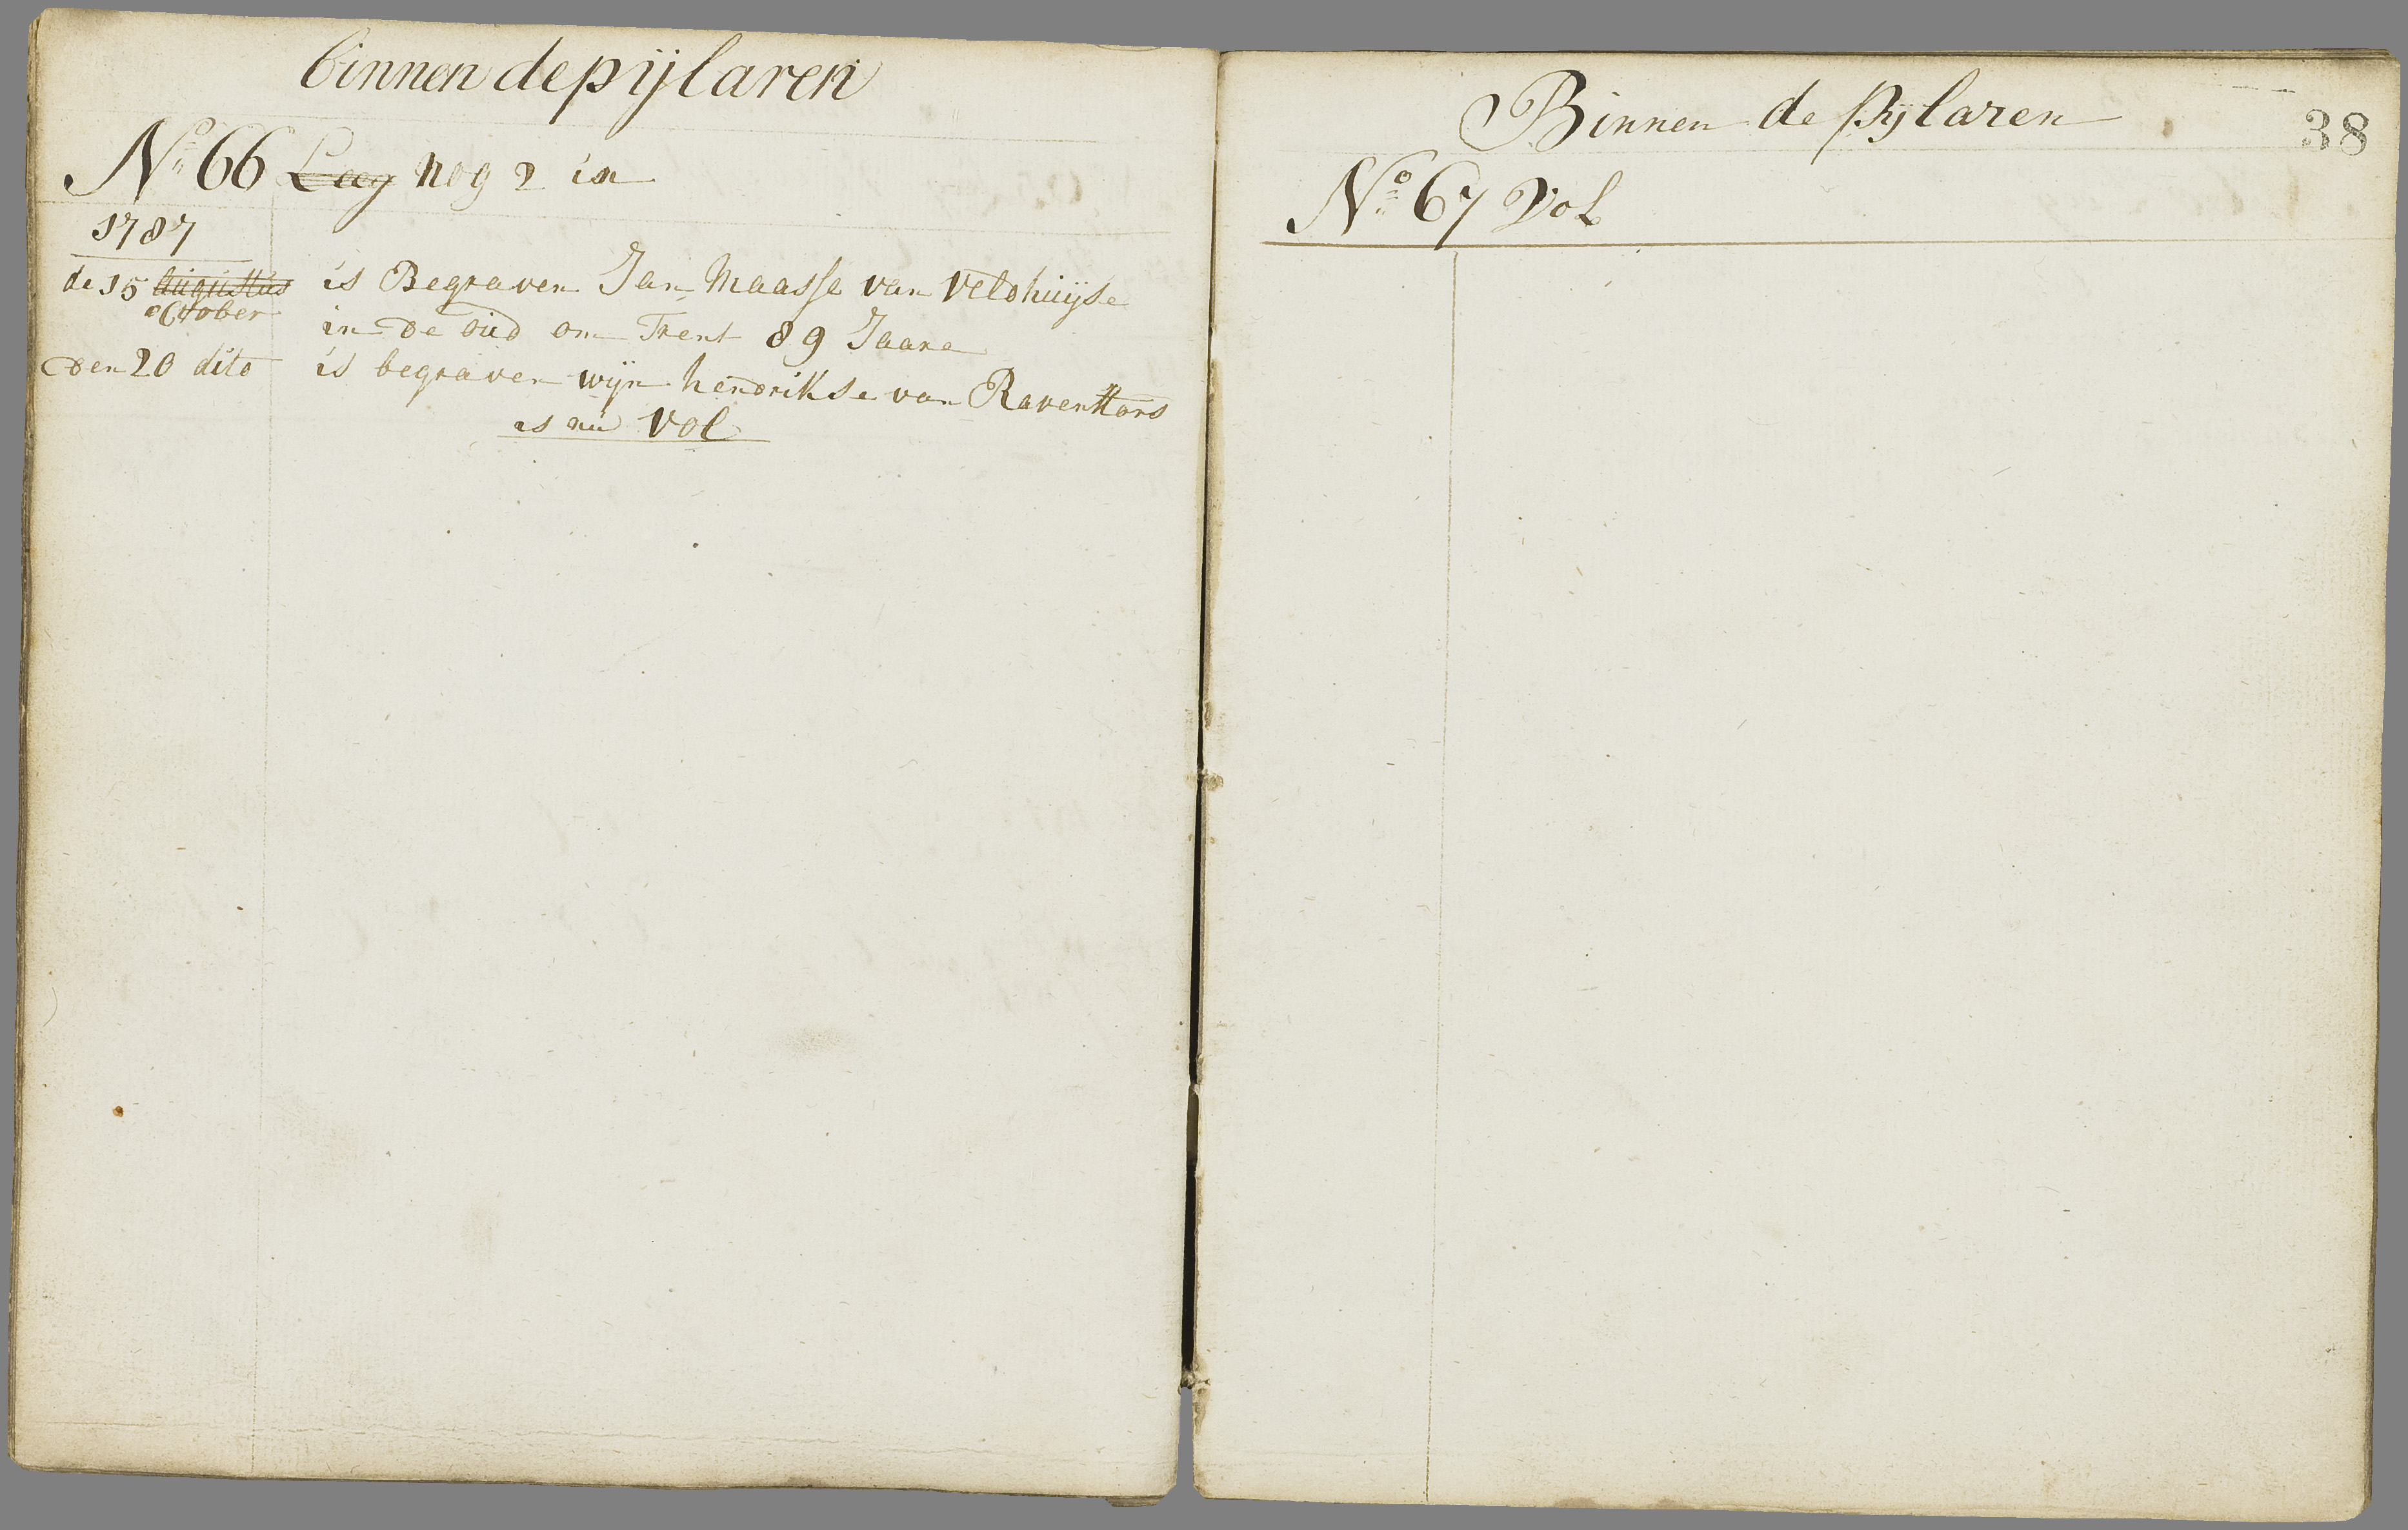 binnen de pijlaren
No 66 Leeg nog 2 in
1787
de 15 augustus is Begraven Jan Maasse van Veldhuijse
october
in de oud om Trent 89 Jaare
den 20 dito is begraven wijn hendrikse van
is nu vol
Binnen de Pijlaren
38
No 67 Vol